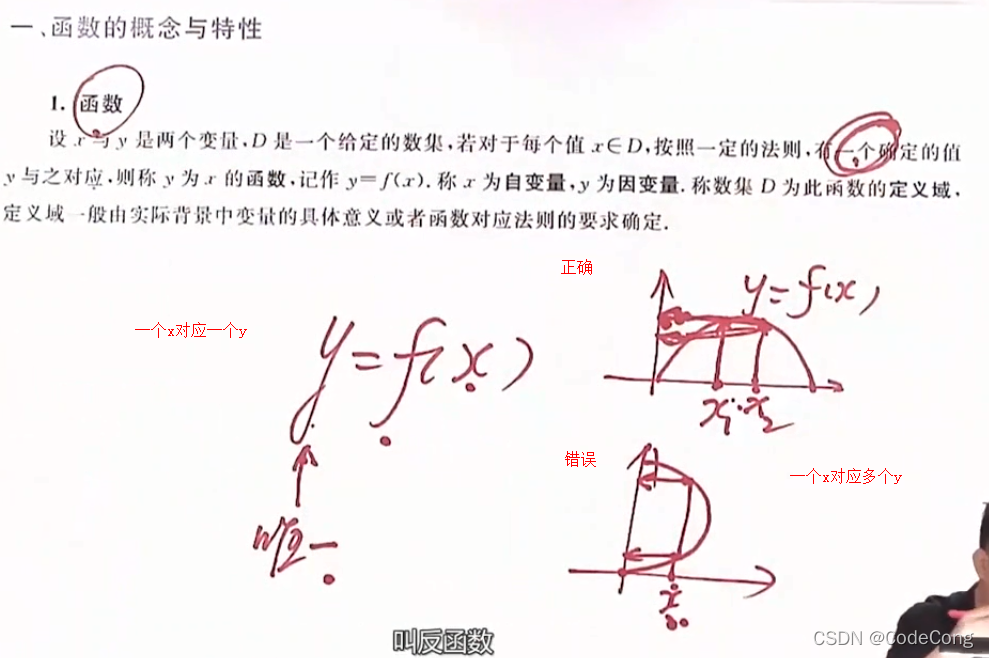 一、函数的概念与特性
1. 函数
设 x 与 y 是两个变量,D 是一个给定的数集,若对于每个值 x∈D,按照一定的法则,有一个确定的值
y 与之对应,则称 y 为 x 的函数,记作 y=f(x).称 x 为自变量,y 为因变量.称数集 D 为此函数的定义域,
定义域一般由实际背景中变量的具体意义或者函数对应法则的要求确定.
正确
y=f(x)
一个x对应一个y
y=f(x)
x₁ x₂
错误
一个x对应多个y
唯一
x
叫反函数
CSDN @CodeCong